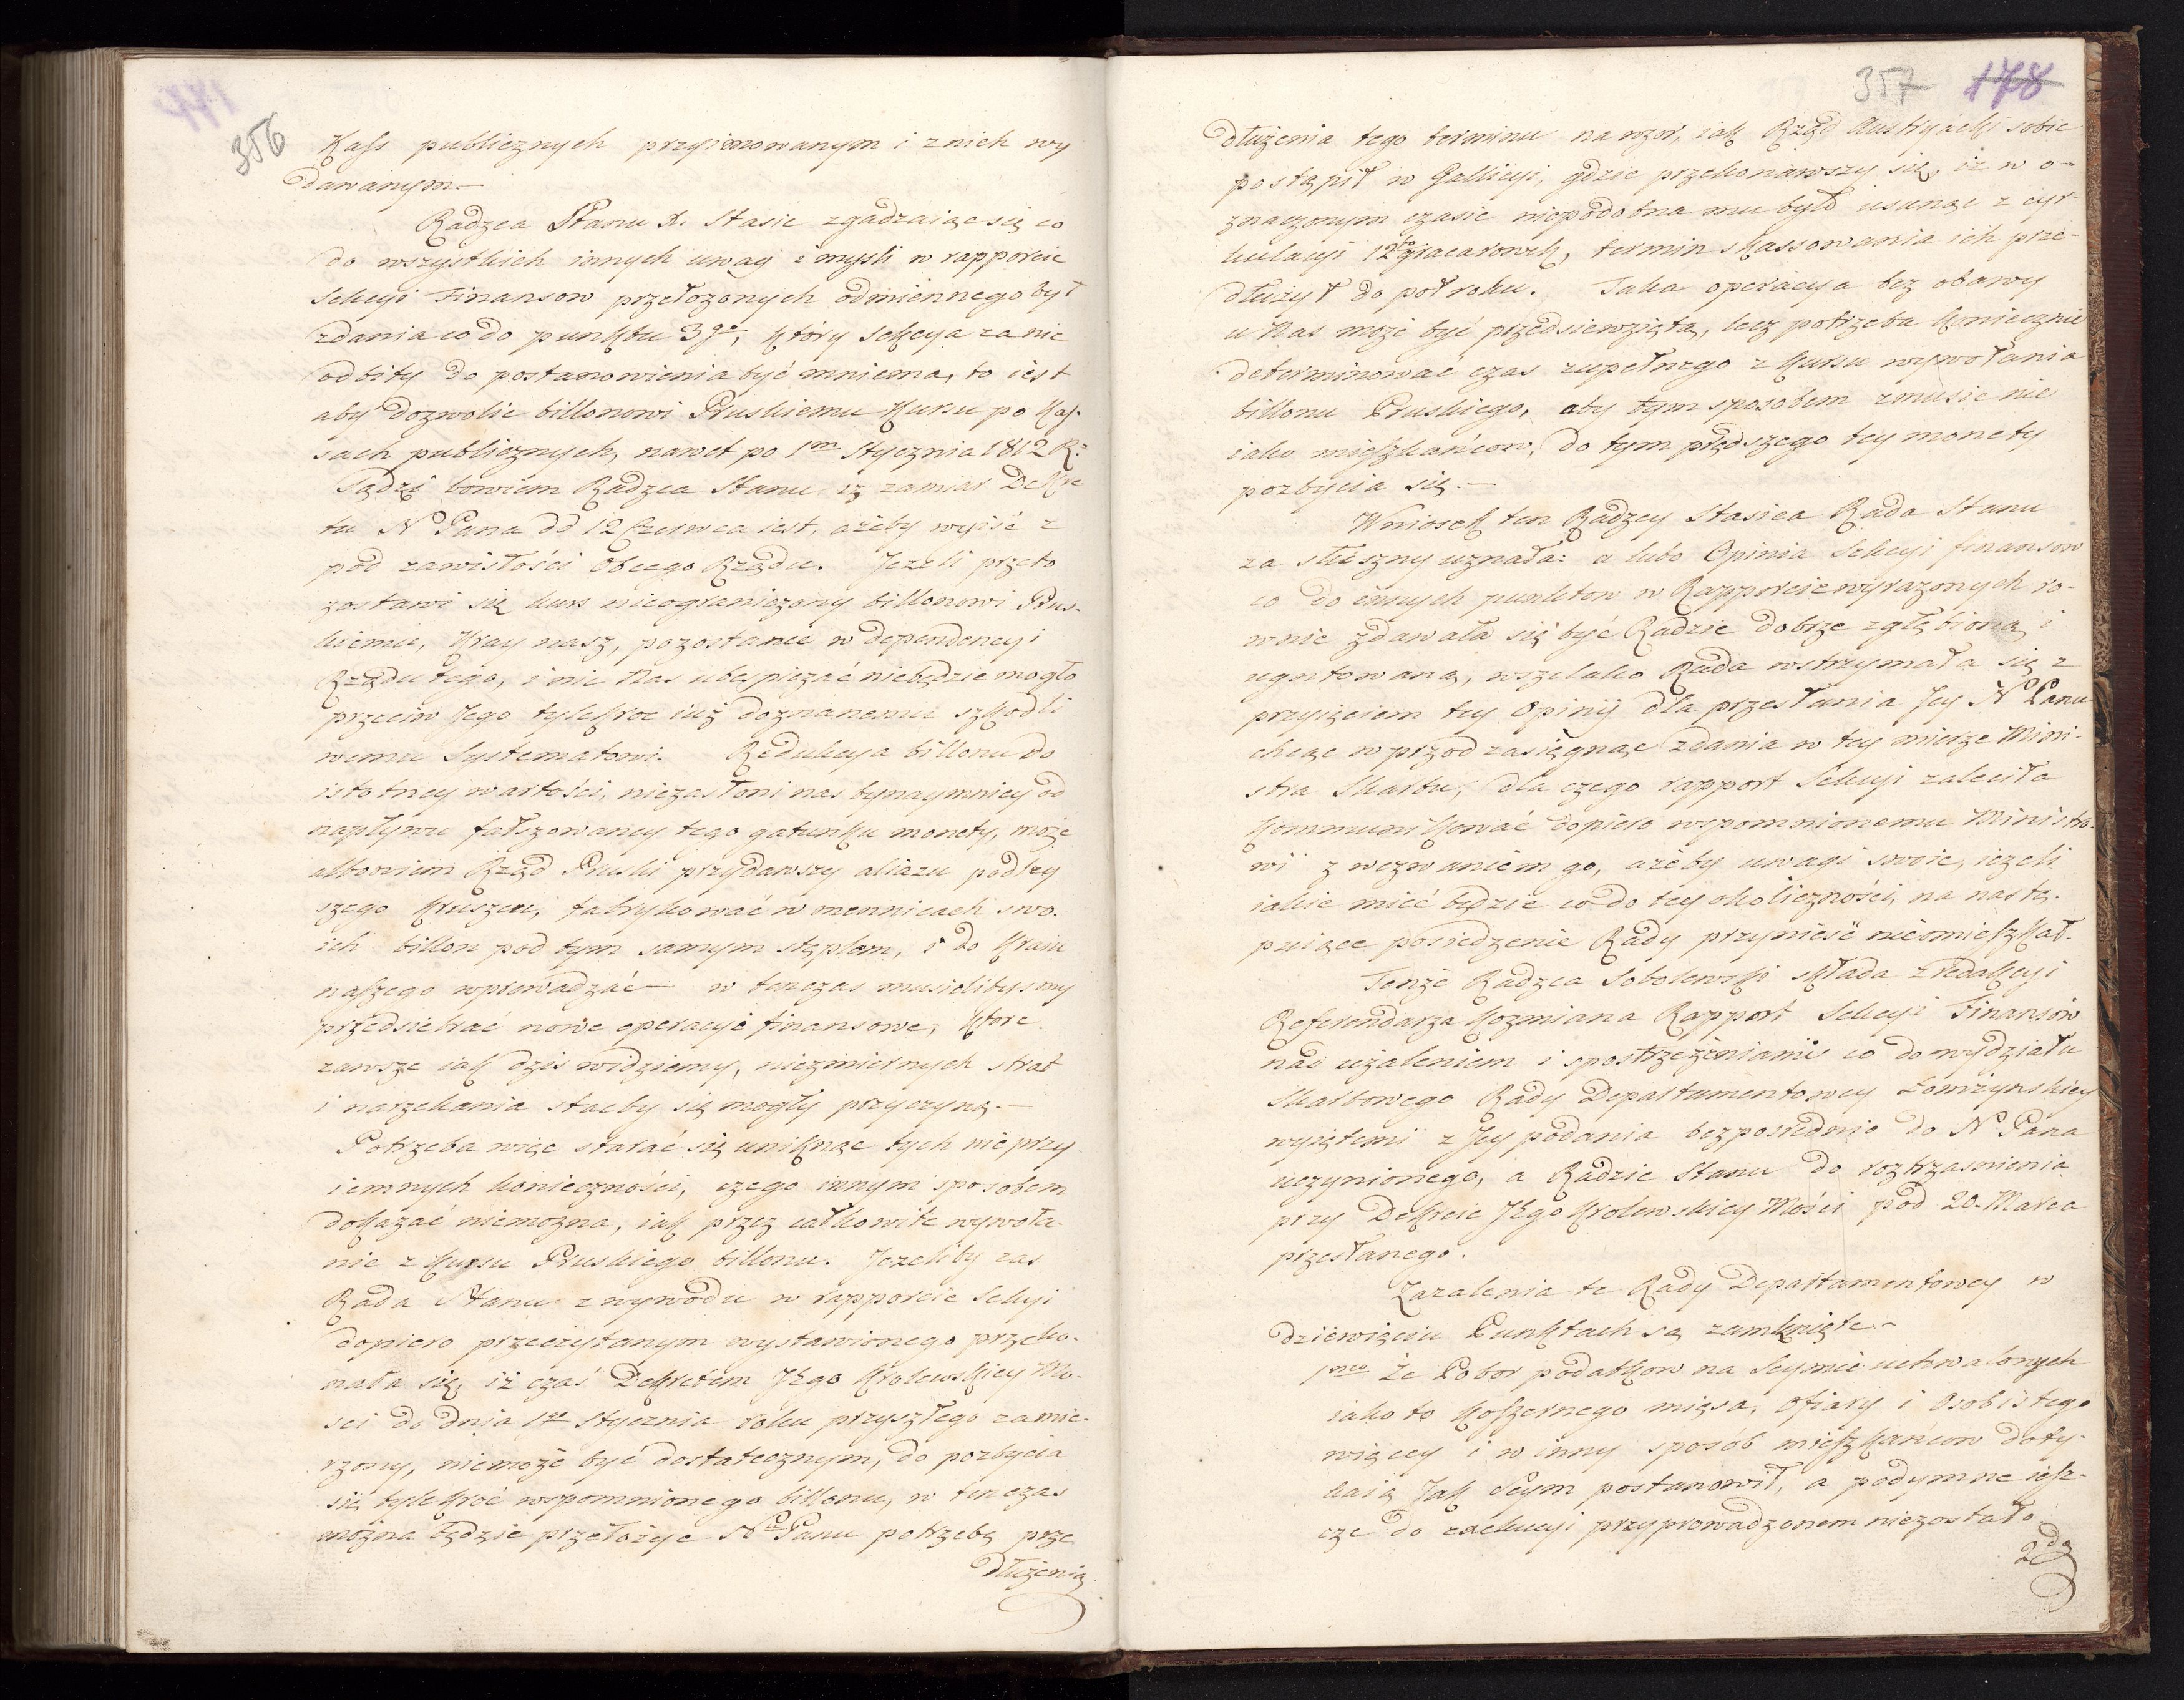 356
Kass publicznych przyimowanym i z nich wy
dawanym.—
Radzca Stanu X. Stasic zgadzaiąc się co
do wszystkich innych uwag i mysli w rapporcie
Sekcyi Finansow przełozonych odmiennego był
zdania co do punktu 3go, który Sekcya za nie
odbity do postanowienia być mniema, to iest
aby dozwolic billonowi Pruskiemu Kursu po Kas-
sach publicznych, nawet po 1m Stycznia 1812 R:
Sądzi bowiem Radzca Stanu iz zamiar Dekre
tu N Pana dd 12 Czerwca iest, ażeby wyiść z
pod zawisłości Obcego Rządu. Jezeli przeto
zostawi się kurs nieograniczony billonowi Prus-
kiemu, Kray nasz, pozostanie w dependencyi
Rządu tego, i nic Nas ubespieczać niebędzie mogło
przeciw Jego tylekroc iuż doznanemu szkodli
wemu Systematowi. Redukcya billonu do
istotney wartości, niezasłoni nas bynaymniey od
napływu fałszowaney tego gatunku monety, może
albowiem Rząd Pruski przydawszy aliażu podley
szego Kruszcu, fabrykować w mennicach swo-
ich billon pod tym samym stęplem, i do Kraiu
naszego wprowadzać — w tenczas musielibysmy
przedsiebrać nowe operacyie finansowe, które
zawsze iak dzis widziemy, niezmiernych strat
i narzekania staćby się mogły przyczyną.—
Potrzeba więc starać się uniknąc tych nieprzy
iemnych konieczności, czego innym sposobem
dokazać niemożna, iak przez całkowite wywoła-
nie z Kursu Pruskiego billonu. Jezeliby zas
Rada Stanu z wywodu w rapporcie Sekcyi
dopiero przeczytanym wystawionego przeko-
nała się, iż czas Dekretem JKgo Krolewskiey Mo-
sci do dnia 1go Stycznia roku przyszłego zamie-
rzony, niemoże być dostatecznym, do pozbycia
się tylekroć wspomnionego billonu, w ten czas
można będzie przełożyc N Panu potrzebę prze
dłużenia
357 178
dłużenia tego terminu na wzor, iak Rząd Austryacki sobie
postąpił w Gallicyi, gdzie przekonawszy się, iż w o-
znaczonym czasie niepodobna mu było usunąc z cyr-
kulacyi 12to gracarowek, termin skassowania ich prze-
dłużył do poł roku. Taka operacya bez obawy
u Nas może być przedsiewzięta, lecz potrzeba koniecznie
determinowac czas zupełnego z Kursu wywołania
billonu Pruskiego, aby tym sposobem zmusic nie
iako mięszkańcow, do tym prędszego tey monety
pozbycia się.—
Wniosek ten Radzcy Stasica Rada Stanu
za słuszny uznała: a lubo Opinia Sekcyi finansow
co do innych punktow w Rapporcie wyrazonych ro-
wnie zdawała się być Radzie dobrze zgłębioną i
ugrntowaną, wszelako Rada wstrzymała się z
przyięciem tey Opinij dla przesłania Jey N Panu
chcąc wprzod zasięgnąc zdania w tey mierze Mini-
stra Skarbu; dla czego rapport Sekcyi zaleciła
Kommunikować dopiero wspomnionemu Ministro-
wi z wezwaniem go, ażeby uwagi swoie, ieżeli
iakie mieć będzie co do tey okoliczności, na nastę-
puiące posiedzenie Rady przynieść nieomieszkał.
Tenże Radzca Sobolewski składa z redakcyi
Referendarza Kozmiana Rapport Sekcyi Finansów
nad użaleniem i spostrzeżeniami co do wydziału
Skarbowego Rady Departamentowey Łomżynskiey
wyiętemi z Jey podania bezposrednio do N Pana
uczynionego, a Radzie Stanu do roztrzasnienia
przy Dekrecie JKgo Krolewskiey Mości pod 20. Marca
przesłanego.
Zazalenia te Rady Departamentowey w
dziewięciu Punktach są zamknięte.—
1mo Że Pobor podatkow na Seymie uchwalonych
iako to Koszernego mięsa, Ofiary i Osobistego
więcey i w inny sposób mieszkańcow doty-
kaią Jak Seym postanowił, a podymne iesz-
cze do exekucyi przyprowadzonem niezostało.
2do